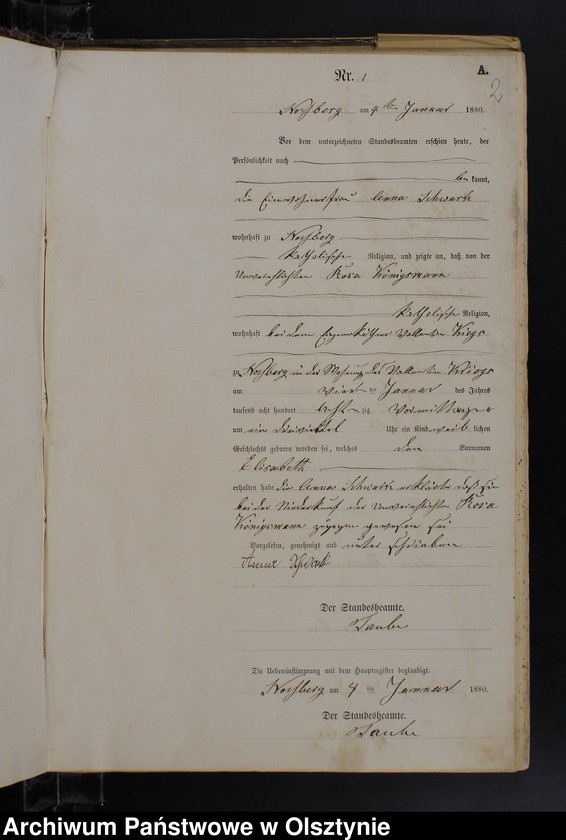 A.
2
Nr. 1
Noßberg am 4ten Januar 1880.
Vor dem unterzeichneten Standesbeamten erschien heute, der
Persönlichkeit nach
bekannt,
die Einwohnerfrau Anna Schwark
wohnhaft zu Noßberg
katholischer Religion, und zeigte an, daß von der
Unverehlichten Rosa Königsmann
katholischer Religion,
wohnhaft bei dem Eigenkäthner Vallentin
zu Noßberg in der Wohnung des Vallentin
am vierten Januar des Jahres
tausend acht hundert achtzig Vormittags
um ein dreiviertel Uhr ein Kind weiblichen
Geschlechts geboren worden sei, welches den Vornamen
Elisabeth
erhalten habe die Anna Schwark erklärte daß sie
bei der Niederkunft der Unverehlichten Rosa
Königsmann zugegen gewesen sei
Vorgelesen, genehmigt und unterschrieben
Anna Schwark
Der Standesbeamte.
Taube
Die Uebereinstimmung mit dem Hauptregister beglaubigt.
Noßberg am 4 ten Januar 1880.
Der Standesbeamte.
Taube
Archiwum Państwowe w Olsztynie